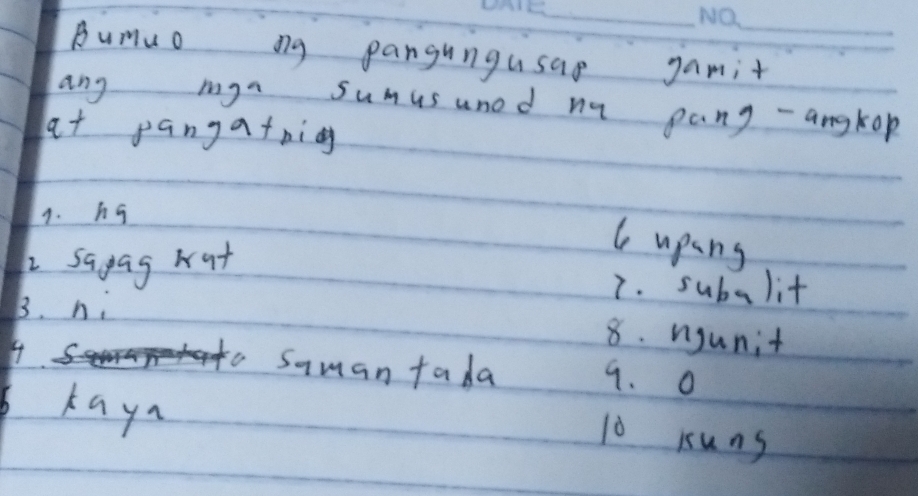 DATE NO.
Bumuo ng pangungusap gamit
ang mga sumusunod na pang-angkop
at pangatnig
1. na
2 sapag kat
3. ni
4. samantada
5 kaya
6 upang
7. subalit
8. ngunit
9. o
10 kung